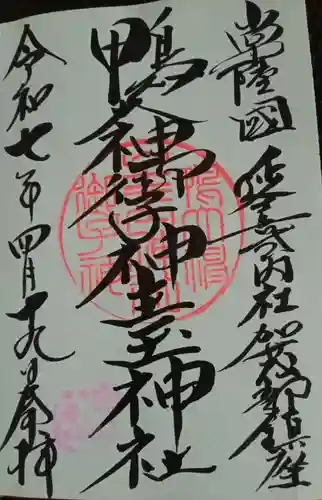 常陸國 延喜式内社 加茂部鎮座
鴨大神御子神主玉神社
令和七年四月十九日奉拝